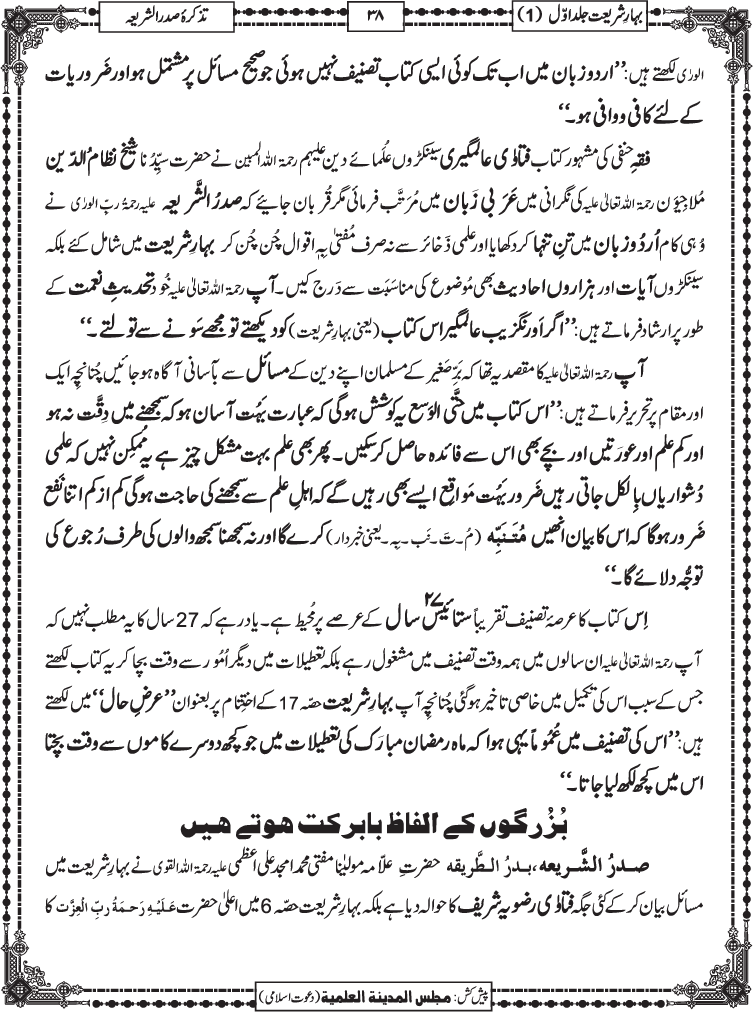 بہارِ شریعت جلد اوّل (1)
۳۸
تذکرۂ صدر الشریعہ
الورٰی لکھتے ہیں:’’اردو زبان میں اب تک کوئی ایسی کتاب تصنیف نہیں ہوئی جو صحیح مسائل پر مشتمل ہو اور ضَروریات
کے لئے کافی ووافی ہو۔‘‘
فقہِ حنفی کی مشہور کتاب فتاوٰی عالمگیری سینکڑوں عُلمائے دین علیہم رحمۃ اللہ المبین نے حضرت سیِّدُنا شیخ نظامُ الدّین
مُلاجِیْوَن رحمۃ اللہ تعالٰی علیہ کی نگرانی میں عَرَبی زَبان میں مُرتَّب فرمائی مگر قُربان جائیے کہ صدرُ الشَّریعہ علیہ رحمۃُ ربِّ الورٰی نے
وُہی کام اُردُوزبان میں تنِ تنہا کر دکھایا اور علمی ذَخائر سے نہ صرف مُفتیٰ بِہٖ اقوال چُن چُن کر بہارِ شریعت میں شامل کئے بلکہ
سینکڑوں آیات اور ہزاروں احادیث بھی مُوضوع کی مناسَبَت سے دَرج کیں۔ آپ رحمۃ اللہ تعالٰی علیہ خُود تحدیثِ نعمت کے
طور پر ارشاد فرماتے ہیں:’’اگر اَورنگزیب عالمگیر اس کتاب (یعنی بہارِ شریعت) کو دیکھتے تو مجھے سَونے سے تولتے۔‘‘
آپ رحمۃ اللہ تعالٰی علیہ کا مقصدیہ تھا کہ بَرِّصَغیر کے مسلمان اپنے دین کے مسائل سے بآسانی آگاہ ہوجائیں چُنانچِہ ایک
اور مقام پر تحریر فرماتے ہیں:’’اس کتاب میں حتَّی الْوَسع یہ کوشش ہوگی کہ عبارت بَہُت آسان ہو کہ سمجھنے میں دِقَّت نہ ہو
اور کم علم اور عورَتیں اور بچے بھی اس سے فائدہ حاصل کرسکیں۔ پھر بھی علم بہت مشکل چیز ہے یہ مُمکِن نہیں کہ علمی
دُشواریاں بِالکل جاتی رہیں ضَرور بَہُت مَواقِع ایسے بھی رہیں گے کہ اہلِ علم سے سمجھنے کی حاجت ہوگی کم از کم اتنا نَفْع
ضَرور ہوگا کہ اس کا بیان انھیں مُتَنَبِّہ (مُ۔تَ۔نَب۔بِہ۔یعنی خبردار) کرے گا اور نہ سمجھنا سمجھ والوں کی طرف رُجوع کی
توجُّہ دلائے گا۔‘‘
اِس کتاب کا عرصۂ تصنیف تقریباً ستائیس۲۷ سال کے عرصے پر مُحیط ہے۔ یاد رہے کہ 27 سال کا یہ مطلب نہیں کہ
آپ رحمۃ اللہ تعالٰی علیہ ان سالوں میں ہمہ وقت تصنیف میں مشغول رہے بلکہ تعطیلات میں دیگر اُمُور سے وقت بچا کر یہ کتاب لکھتے
جس کے سبب اس کی تکمیل میں خاصی تاخیر ہوگئی چُنانچِہ آپ بہارِ شریعت حصّہ 17 کے اختِتام پر بعنوان ’’عرضِ حال‘‘ میں لکھتے
ہیں:’’اس کی تصنیف میں عُمُوماً یہی ہوا کہ ماہِ رمضان مبارَک کی تعطیلات میں جو کچھ دوسرے کاموں سے وقت بچتا
اس میں کچھ لکھ لیا جاتا۔‘‘
بُزُرگوں کے الفاظ بابرکت ہوتے ہیں
صدرُ الشَّریعہ، بدرُ الطَّریقہ حضرتِ علّامہ مولٰینا مفتی محمد امجد علی اعظمی علیہ رحمۃ اللہ القوی نے بہارِ شریعت میں
مسائل بیان کر کے کئی جگہ فتاوٰی رضویہ شریف کا حوالہ دیا ہے بلکہ بہارِ شریعت حصّہ 6 میں اعلیٰ حضرت عَلَیْہِ رَحمَۃُ ربِّ الْعِزَّت کا
پیش کش: مجلس المدینۃ العلمیۃ (دعوت اسلامی)